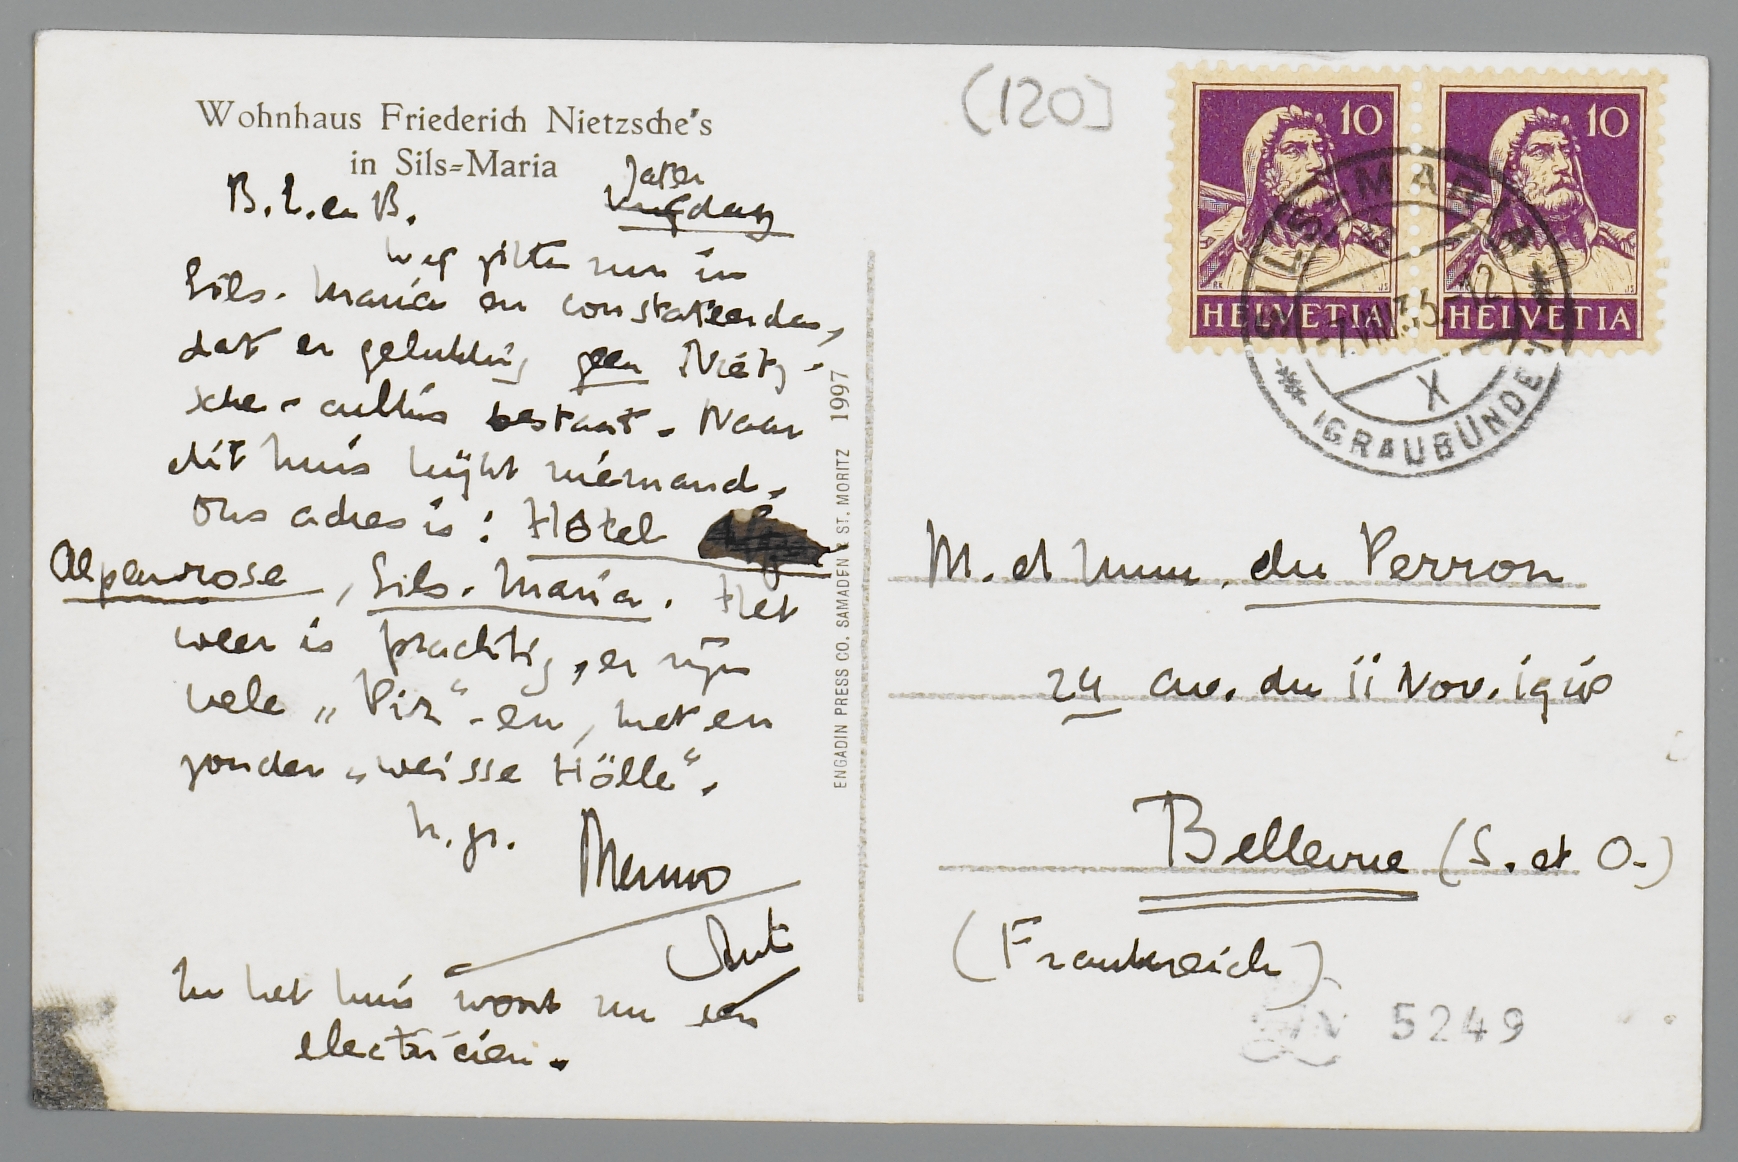 Wohnhaus Friederich Nietzsche's
in Sils=Maria
B. L. en B.
Wij zitten nu in
Sils-Maria en constateerden,
dat er gelukkig geen Nietz-
sche-cultus bestaat. Naar
dit huis kijkt niemand.
Ons adres is: Hôtel
Alpenrose, Sils-Maria. Het
weer is prachtig, er zijn
vele „Piz"-en, met en
zonder „weisse Hölle".
h. gr.
Menno
Ant
In het huis woont nu een
electricien.
ENGADIN PRESS CO. SAMADEN & ST. MORITZ 1997
(120)
10 10
HELVETIA HELVETIA
SILS-MARIA
(GRAUBÜNDEN)
X
M. et Mme. du Perron
24 av. du 11 Nov. 1918
Bellevue (S. et O.)
(Frankreich)
5249